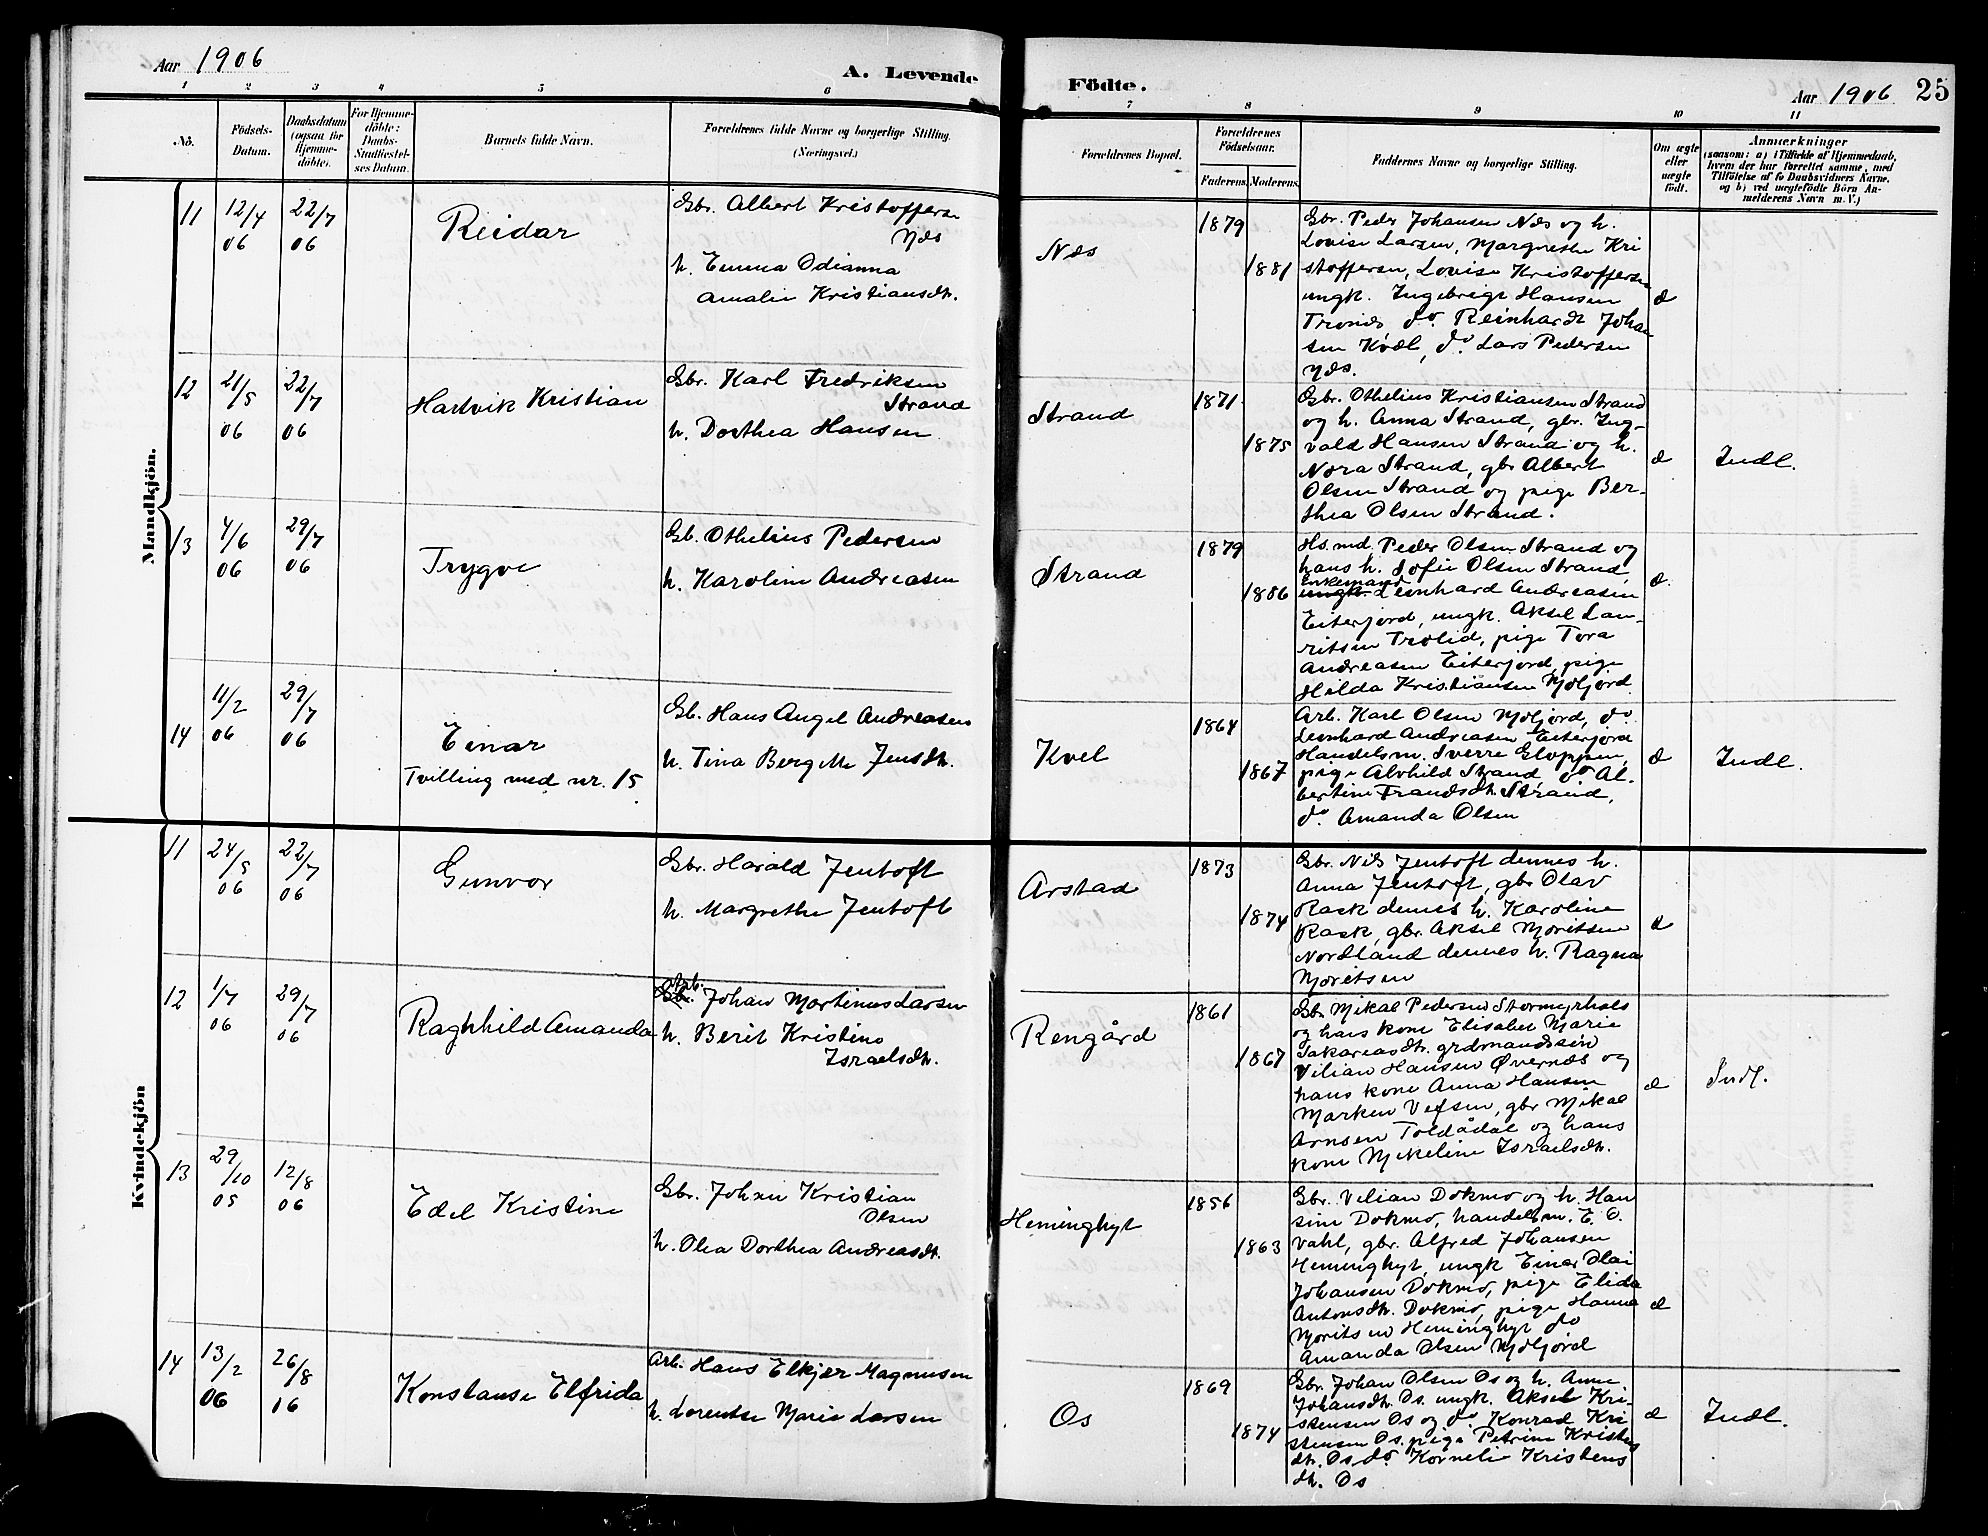 Aar 1906
A. Levende Födte.
Aar 1906 25
1 2 3 4 5 6 7 8 9 10 11
No.
Födsels-
Datum.
Daabsdatum
(ogsaa for
Hjemme-
döbte).
For Hjemme-
döbte:
Daabs-
Stadfæstel-
ses Datum.
Barnets fulde Navn.
Forældrenes fulde Navne og borgerlige Stilling.
(Næringsvei.)
Forældrenes Bopæl.
Forældrenes
Födselsaar.
Faderens. Moderens.
Faddernes Navne og borgerlige Stilling.
Om ægte
eller
uægte
födt.
Anmærkninger
(saasom: a) i Tilfælde af Hjemmedaab,
hvem der har forrettet samme, med
Tilföielse af to Daabsvidners Navne,
og b) ved uægtefödte Börn An-
melderens Navn m. V.)
Mandkjön.
11
12/4
06
22/7
06
Reidar
Gbr. Albert Kristoffersen
Næs
h. Emma Odianna
Amalie Kristiansdtr.
Næs
1879
1881
Gbr. Peder Johansen Næs og h.
Lovise Larsen, Margrethe Kri
stoffersen, Lovise Kristoffersen
ungk. Ingebrigt Hansen
Tronæs, do. Reinhardt Johan
sen Kvæl, do. Lars Pedersen
Næs.
æ
12
21/5
06
22/7
06
Hartvik Kristian
Gbr. Karl Fredriksen
Strand
h. Dorthea Hansen
Strand
1871
1875
Gbr. Othelius Kristiansen Strand
og h. Anna Strand, gbr. Ing-
vald Hansen Strand og h.
Nora Strand, gbr Albert
Olsen Strand og pige Ber-
thea Olsen Strand.
æ
Indl.
13
4/6
06
29/7
06
Trygve
Gb. Othelius Pedersen
h. Karoline Andreasen
Strand
1879
1886
Hs.md. Peder Olsen Strand og
hans h. Sofie Olsen Strand,
Enkemand
ungk. Leonhard Andreasen
Eiterjord, ungk. Aksel Lau-
ritsen Trolid, pige Tora
Andreasen Eiterjord, pige
Hilda Kristiansen Moljord
æ.
14
11/2
06
29/7
06
Einar
Tvilling med nr. 15
Gb. Hans Angel Andreasen
h. Tina Bergitte Jensdtr.
Kvel
1864
1867
Arb. Karl Olsen Moljord, do.
Leonhard Andreasen Eiterjord
Handelsm. Sverre Gloppen,
pige Alvhild Strand, do Al-
bertine Frandsdtr. Strand,
do. Amanda Olsen
æ
Indl.
Kvindekjön
11
24/5
06
22/7
06
Gunvor
Gbr. Harald Jentoft
h. Margrethe Jentoft
Arstad
1873
1874
Gbr. Nils Jentoft dennes h.
Anna Jentoft, gbr Olav
Rask dennes h. Karoline
Rask, gbr. Aksel Moritsen
Nordland dennes h. Ragna
Moritsen
æ
12
1/7
06
29/7
06
Raghhild Amanda
Arb.
Gbr. Johan Martinus Larsen
h. Berit Kristine
Israelsdtr.
Rengård
1861
1867
Gbr Mikal Pedersen Stormyrhals
og hans kone Elisabet Marie
Sakariasdtr. grdmandssøn
Vilian Hansen Øvernæs og
hans kone Anna Hansen
Marken Vefsen, gbr Mikal
Arnsen Toldådal og hans
kone Mikeline Israelsdtr.
æ
Indl.
13
29/10
05
12/8
06
Edel Kristine
Gbr. Johan Kristian
Olsen
h. Olea Dorthea Andreasdtr.
Heminghyt
1856
1863
Gbr. Vilian Dokmo og h. Han
sine Dokmo, handelsm. E. O.
Vahl, gbr. Alfred Johansen
Heminghyt, ungk Einar Olai
Johansen Dokmo, pige Elida
Antonsdtr. Dokmo, pige Hanna
Moritsen Heminghyt do
Amanda Olsen Moljord
æ
14
13/2
06
26/8
06
Konstanse Elfrida
Arb. Hans Elkjær Magnusen
h. Lorentse Marie Larsen
Os
1869
1874
Gbr. Johan Olsen Os og h. Anne
Johansdtr. Os. ungk. Aksel Kri-
stensen Os og do Konrad Kri
stensen Os. pige Petrine Kristens
dtr. Os, do Kornelie Kristens
dtr. Os
æ
Indl.